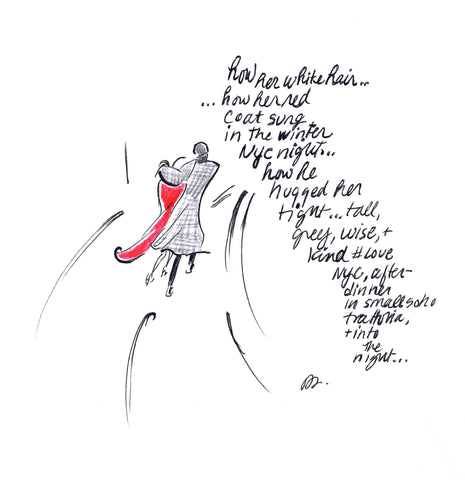 how her white hair..
... how her red
coat sung
in the winter
NYC night...
how he
hugged her
tight... tall,
grey, wise, +
kind #love
NYC, after-
dinner
in small soho
trattoria,
+ into
the
night...